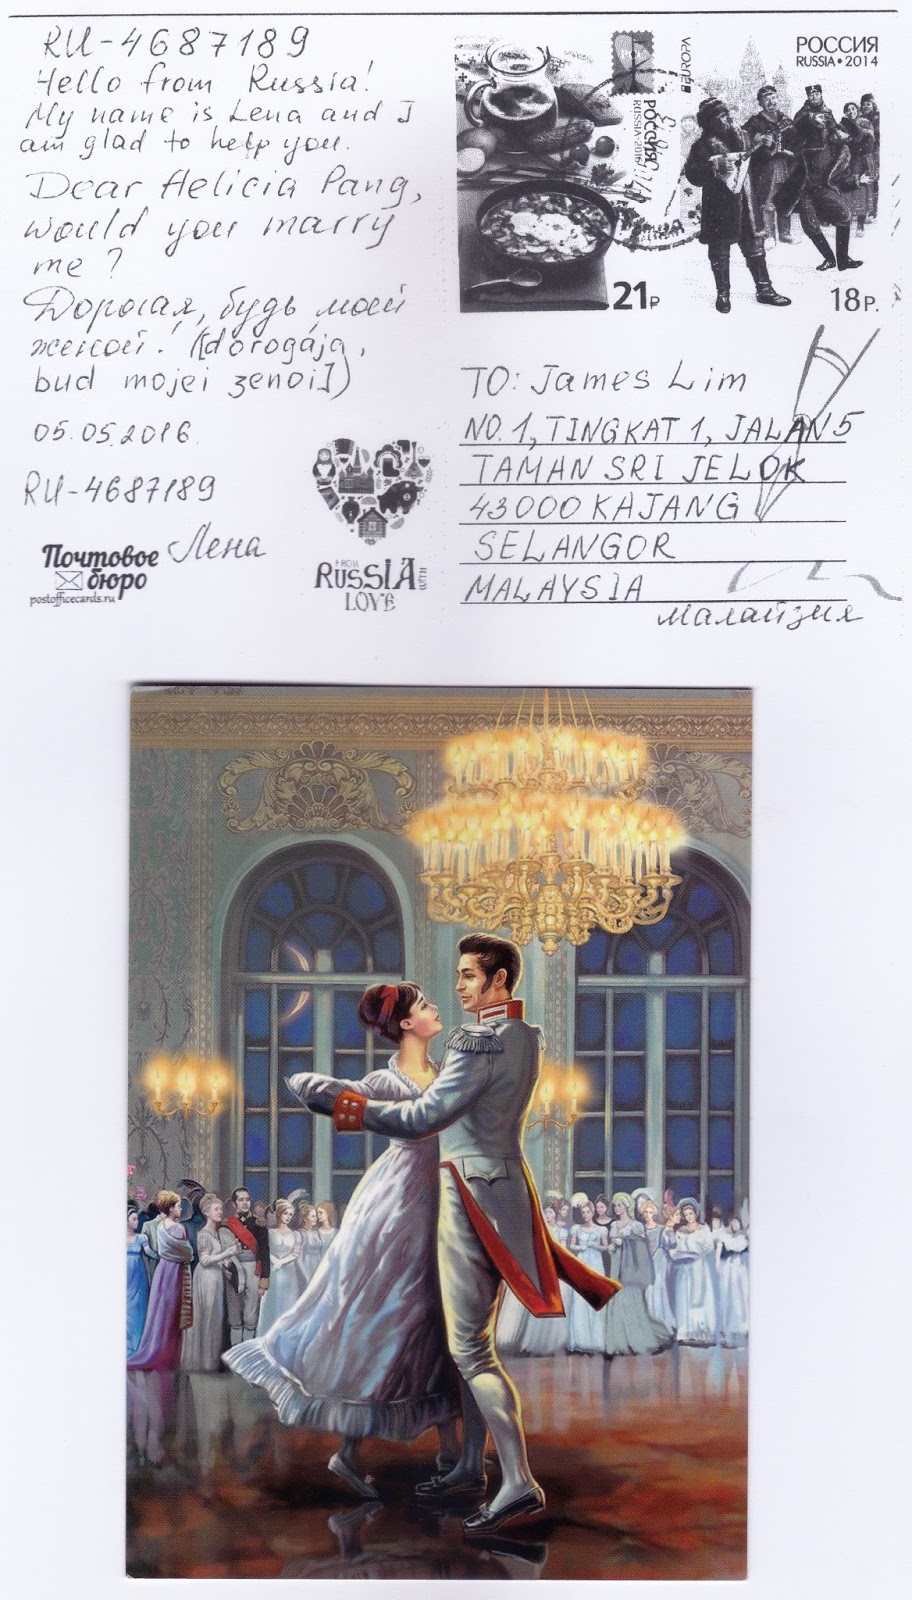 RU-4687189
Hello from Russia!
My name is Lena and I
am glad to help you.
Dear Helicia Pang,
would you marry
me?
Дорогая, будь моей
женой! ([dorogája,
bud mojei zenoi])
05.05.2016.
RU-4687189
Лена
Почтовое
бюро
postofficecards.ru
FROM
RUSSIA
WITH
LOVE
РОССИЯ
RUSSIA • 2014
EUROPA
РОССИЯ
RUSSIA•2016
21Р
18Р.
TO: James Lim
NO. 1, TINGKAT 1, JALAN 5
TAMAN SRI JELOK
43000 KAJANG
SELANGOR
MALAYSIA
Малайзия